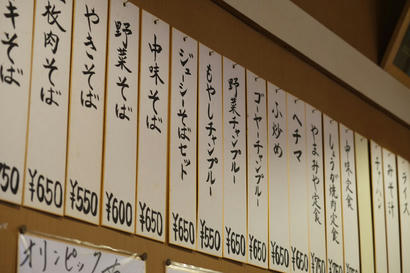 キそば
750
枝肉そば
¥650
やきそば
¥550
野菜そば
¥600
中味そば
¥650
ジューシーそばセット
¥650
もやしチャンプルー
¥550
野菜チャンプルー
¥650
ゴーヤーチャンプルー
¥650
ふ炒め
¥650
ヘチマ
¥650
やまみや定食
しょうが焼肉定食
中味定食
チャーハン
みそ汁
ライス
オリンピック